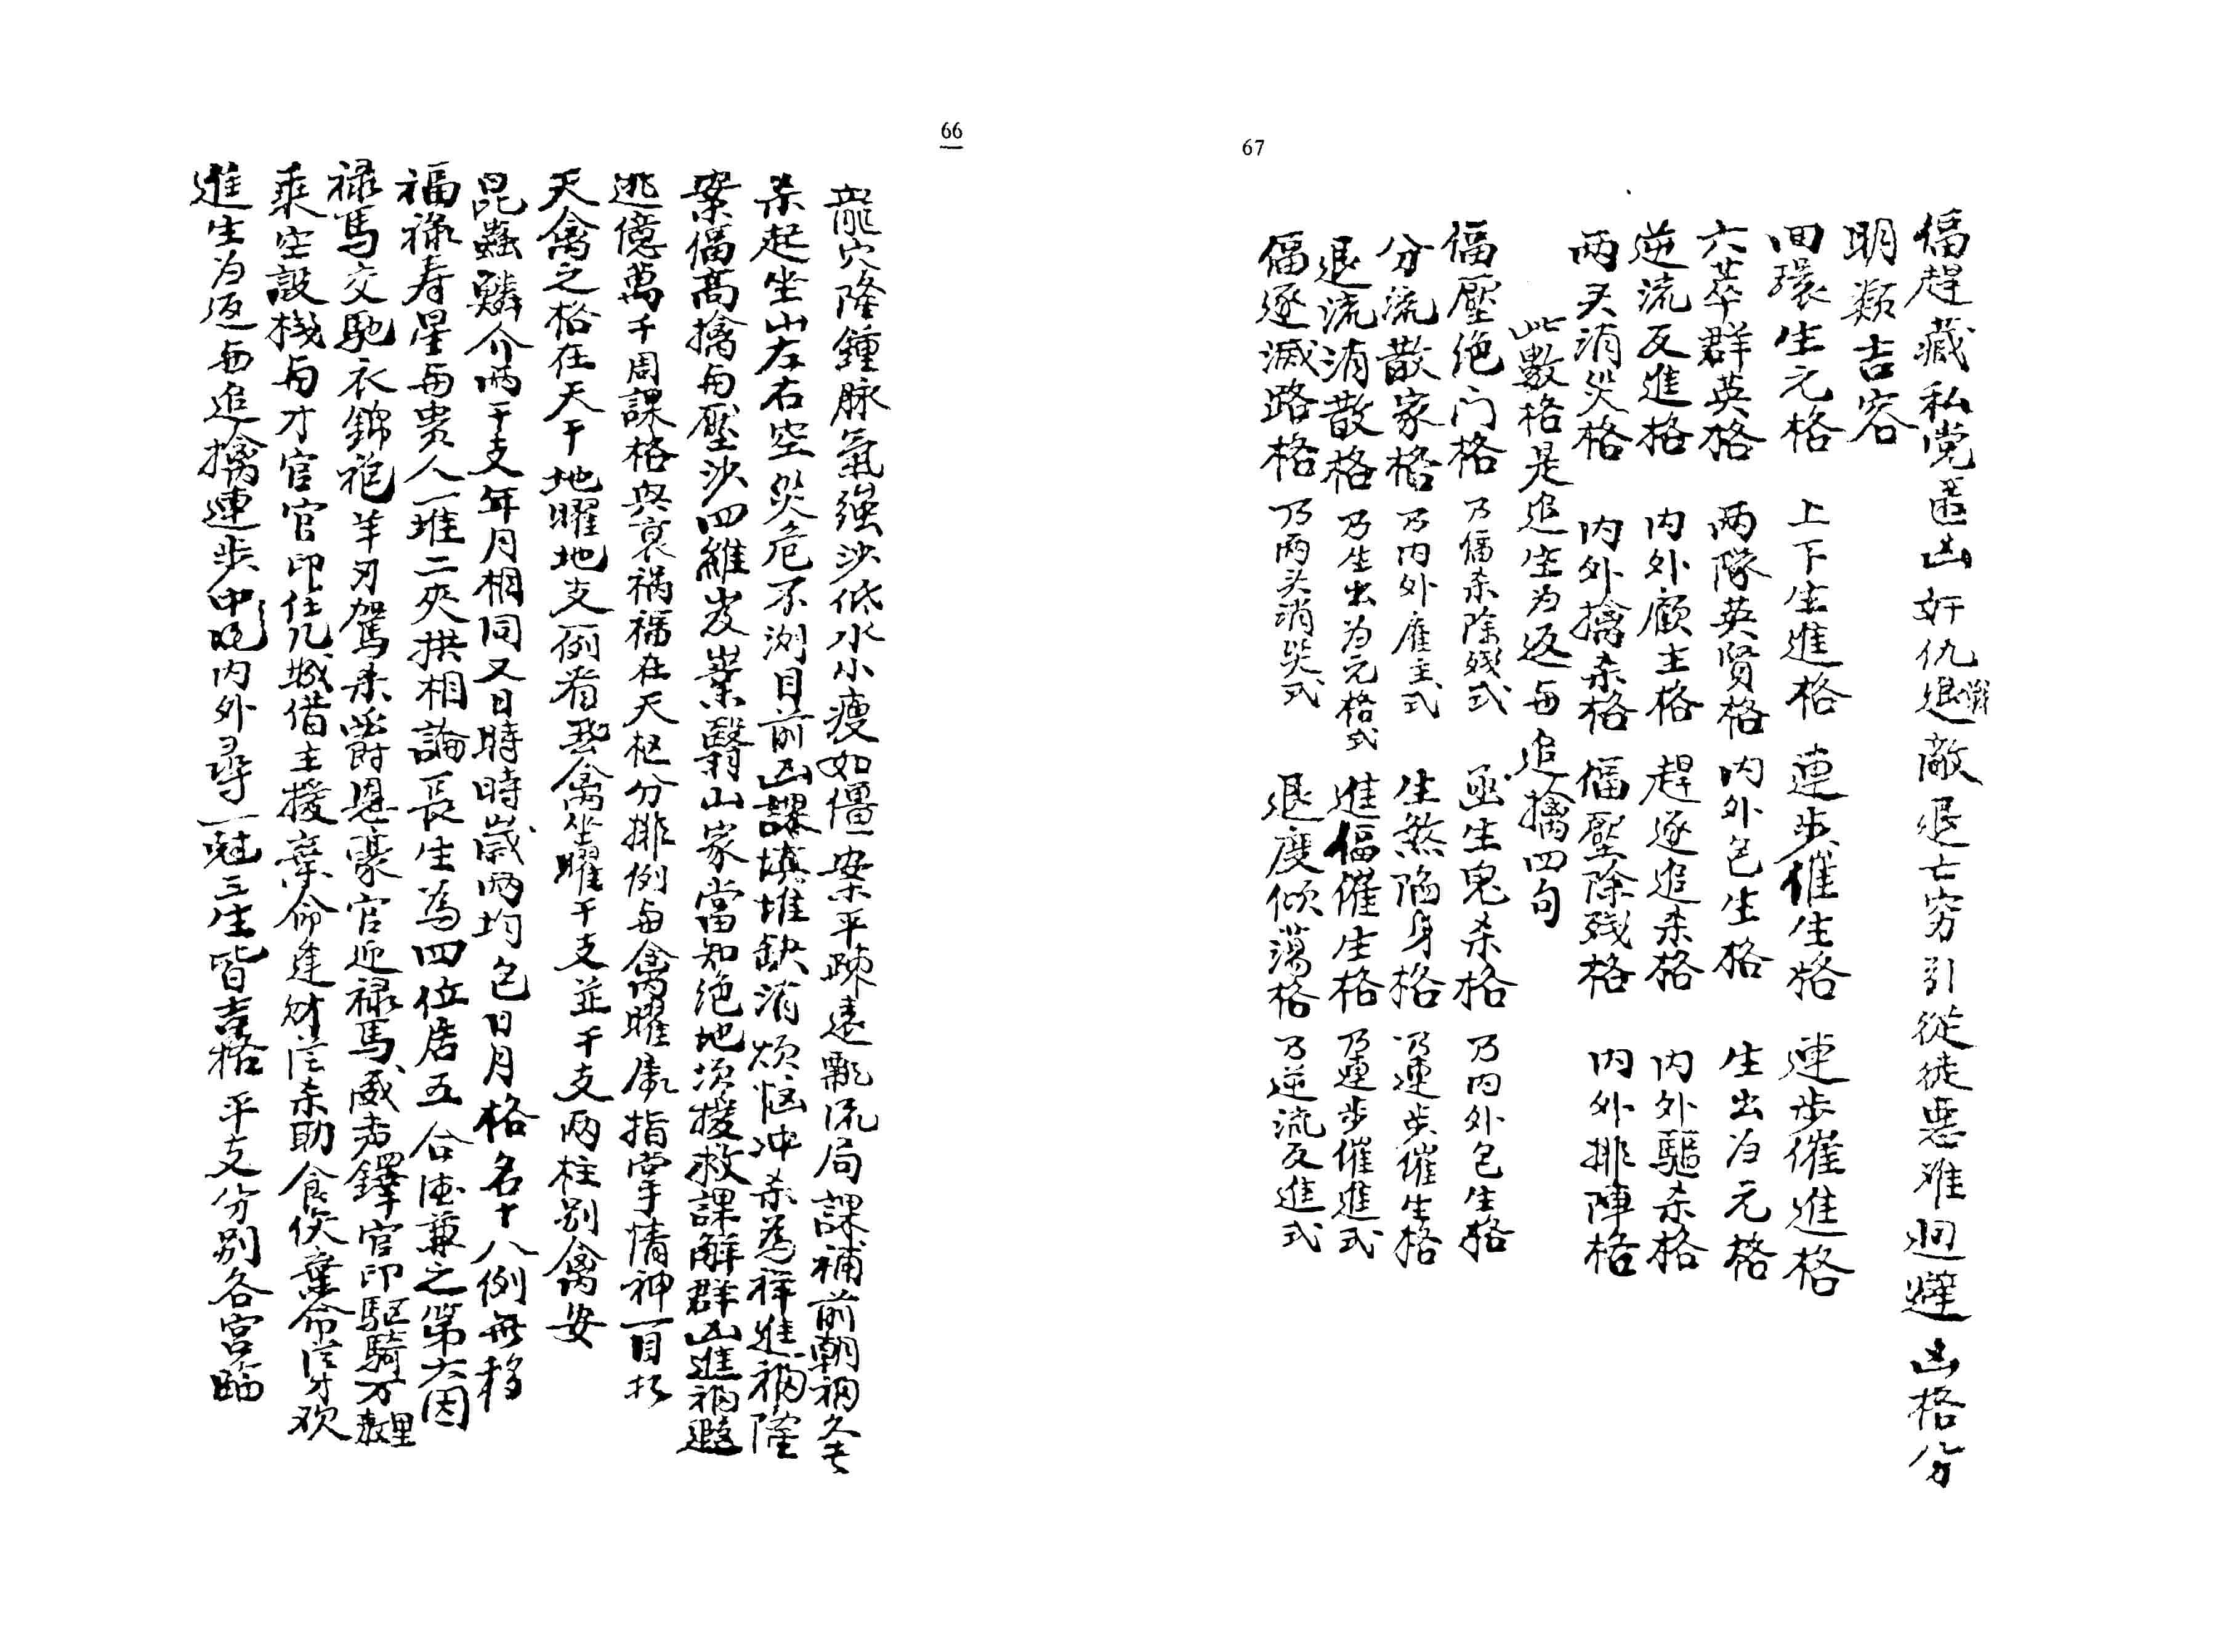 66
龍穴隆鍾脉氣強沙低水小瘦如僵案平踈遠亂流局課補前朝禍久
杀起坐山左右空災危不測目前凶課填堆缺消煩惱冲杀為祥進禍隆
案偪高擒与壓沙四維岌嶪翳山家當知絶地湏援救課解群凶進禍遐
逃億萬千周課格與衰禍福在天枢分排例与禽曜處指掌情神一目
天禽之格在天干地曜地支一例看禽坐曜干支並干支两柱别禽安
昆蟲鱗介两干支年月相同又日時時歲两均包日月格名十八例無移
福禄寿星与贵人一堆二夾拱相論長生為四位居五合德兼之第六因
禄馬交馳衣錦袍羊刃駕杀爵恩豪官迎禄馬威声鐸官印駆騎万里
乘空設棧与才官官印任凢城借主援棄命逢財从杀助食从棄命从才欢
進生为返与追擒連步中内外尋一魁三生皆吉格平支分别各宫臨
67
偪趕藏私党匿凶奸仇退敵退亡穷引從徒惡难廻避凶格分
明類吉容
囬環生元格 上下生進格 連步催生格 連步催進格
六萃群英格 两隊英賢格 内外包生格 生出为元格
逆流反進格 内外顧主格 趕逐追杀格 内外驅杀格
两头消災格 内外擒杀格 偪壓除残格 内外排陣格
此數格是追生为返与追擒四句
偪壓绝门格 乃偪杀除残式 丞生鬼杀格 乃内外包生格
分流散家格 乃内外雇主式 生煞陷身格 乃連步催生格
退流消散格 乃生出为元格式 進偪催生格 乃連步催進式
偪逐滅路格 乃两头消災式 退度倾蕩格 乃逆流反進式